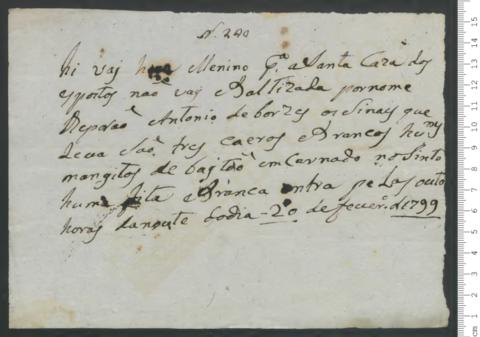 N. 240
hi vaj Menino Pª a Santa Caza dos
espostos não vaj Baltizada por nome
Reparaõ Antonio de borzes os Sinaes que
Leva Saõ tres caeros Brancos huns
mangitos de bajtaõ emCarnado no Sinto
huma fita Branca entra pelas outo
horas danoute do dia 20 de fever.º d 1799